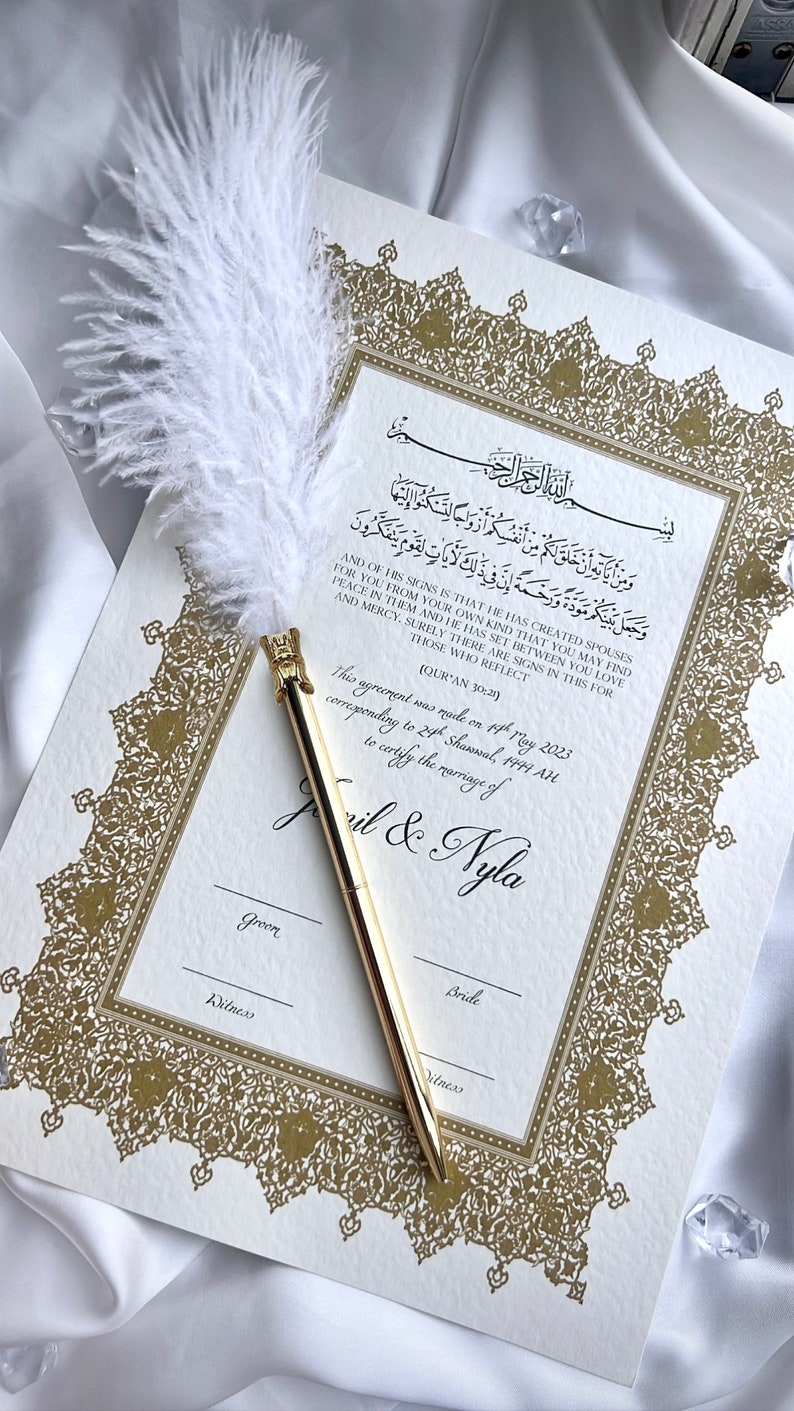 بِسْمِ اللَّهِ الرَّحْمَنِ الرَّحِيمِ
وَمِنْ آيَاتِهِ أَنْ خَلَقَ لَكُمْ مِنْ أَنْفُسِكُمْ أَزْوَاجًا لِتَسْكُنُوا إِلَيْهَا
وَجَعَلَ بَيْنَكُمْ مَوَدَّةً وَرَحْمَةً إِنَّ فِي ذَلِكَ لَآيَاتٍ لِقَوْمٍ يَتَفَكَّرُونَ
AND OF HIS SIGNS IS THAT HE HAS CREATED SPOUSES
FOR YOU FROM YOUR OWN KIND THAT YOU MAY FIND
PEACE IN THEM AND HE HAS SET BETWEEN YOU LOVE
AND MERCY. SURELY THERE ARE SIGNS IN THIS FOR
THOSE WHO REFLECT
(QUR'AN 30:21)
This agreement was made on 14th May 2023
corresponding to 24th Shawwal, 1444 AH
to certify the marriage of
& Nyla
Groom
Bride
Witness